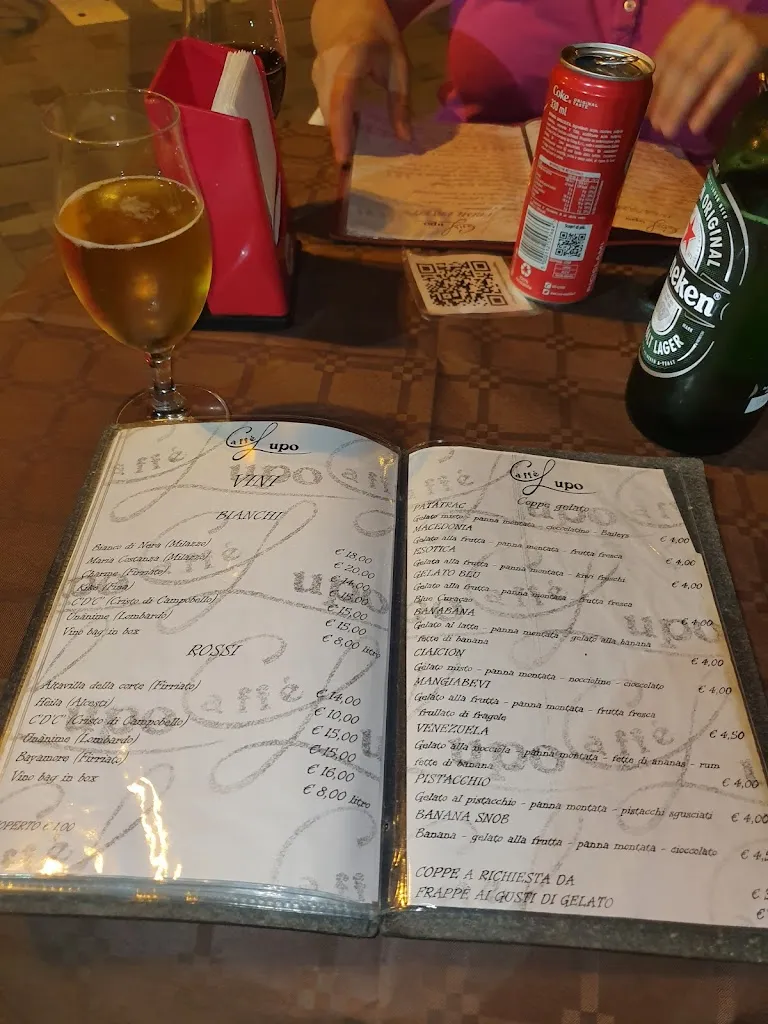 Coke
ORIGINAL
TASTE
330 ml
ORIGINAL
eken®
LAGER
Caffè Lupo
VINI
BIANCHI
Bianco di Nera (Milazzo) € 18,00
Maria Costanza (Milazzo) € 20,00
Charme (Firriato) € 14,00
Kikè (Fina) € 15,00
C'D'C' (Cristo di Campobello) € 15,00
Unànime (Lombardo) € 15,00
Vino bag in box € 8,00 litro
ROSSI
Altavilla della corte (Firriato) € 14,00
(Alcesti) € 10,00
C'D'C' (Cristo di Campobello) € 15,00
Unànime (Lombardo) € 15,00
Bayamore (Firriato) € 16,00
Vino bag in box € 8,00 litro
OPERTO € 1,00
Caffè Lupo
Coppe gelato
PATATRAC
Gelato misto - panna montata - cioccolatino - Baileys € 4,00
MACEDONIA
Gelato alla frutta - panna montata - frutta fresca € 4,00
ESOTICA
Gelato alla frutta - panna montata - kiwi freschi € 4,00
GELATO BLU
Gelato alla frutta - panna montata - frutta fresca
Blue Curaçao € 4,00
BANABANA
Gelato al latte - panna montata - gelato alla banana
fette di banana € 4,00
CIAICION
Gelato misto - panna montata - noccioline - cioccolato € 4,00
MANGIABEVI
Gelato alla frutta - panna montata - frutta fresca
frullato di fragole € 4,50
VENEZUELA
Gelato alla nocciola - panna montata - fette di ananas - rum
fette di banana € 4,00
PISTACCHIO
Gelato al pistacchio - panna montata - pistacchi sgusciati € 4,00
BANANA SNOB
Banana - gelato alla frutta - panna montata - cioccolato € 4,5
COPPE A RICHIESTA DA €
FRAPPÈ AI GUSTI DI GELATO €